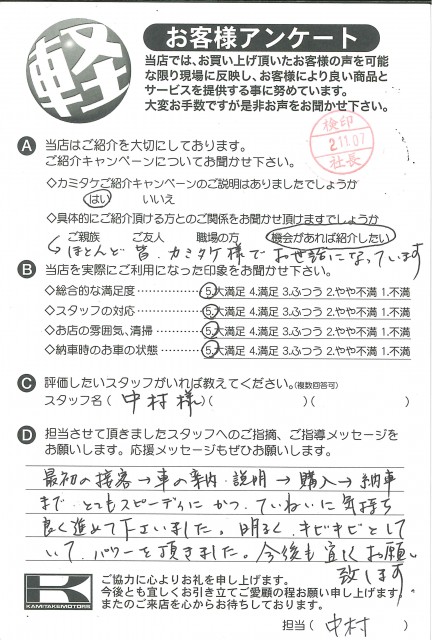 軽
お客様アンケート
当店では、お買い上げ頂いたお客様の声を可能
な限り現場に反映し、お客様により良い商品と
サービスを提供する事に努めています。
大変お手数ですが是非お声をお聞かせ下さい。
検印
2 11.07
社長
A 当店はご紹介を大切にしております。
ご紹介キャンペーンについてお聞かせ下さい。
◇カミタケご紹介キャンペーンのご説明はありましたでしょうか
はい いいえ
◇具体的にご紹介頂ける方とのご関係をお聞かせ頂けますでしょうか
ご親族 ご友人 職場の方 機会があれば紹介したい
ほとんど皆、カミタケ様でお世話になっています
B 当店を実際にご利用になった印象をお聞かせ下さい。
◇総合的な満足度………………5.大満足 4.満足 3.ふつう 2.やや不満 1.不満
◇スタッフの対応………………5.大満足 4.満足 3.ふつう 2.やや不満 1.不満
◇お店の雰囲気、清掃…………5.大満足 4.満足 3.ふつう 2.やや不満 1.不満
◇納車時のお車の状態…………5.大満足 4.満足 3.ふつう 2.やや不満 1.不満
C 評価したいスタッフがいれば教えてください。(複数回答可)
スタッフ名(中村様)( )( )
D 担当させて頂きましたスタッフへのご指摘、ご指導メッセージを
お願いします。応援メッセージもぜひお願いします。
最初の接客→車の案内・説明→購入→納車
まで、とてもスピーディに かつ、ていねいに気持ち
良く進めて下さいました。明るく、キビキビとして
いて、パワーを頂きました。今後も宜しくお願い
致します
KAMITAKEMOTORS
ご協力に心よりお礼を申し上げます。
今後とも宜しくお引き立てご愛顧の程お願い申し上げます。
またのご来店を心からお待ちしております。
担当(中村)